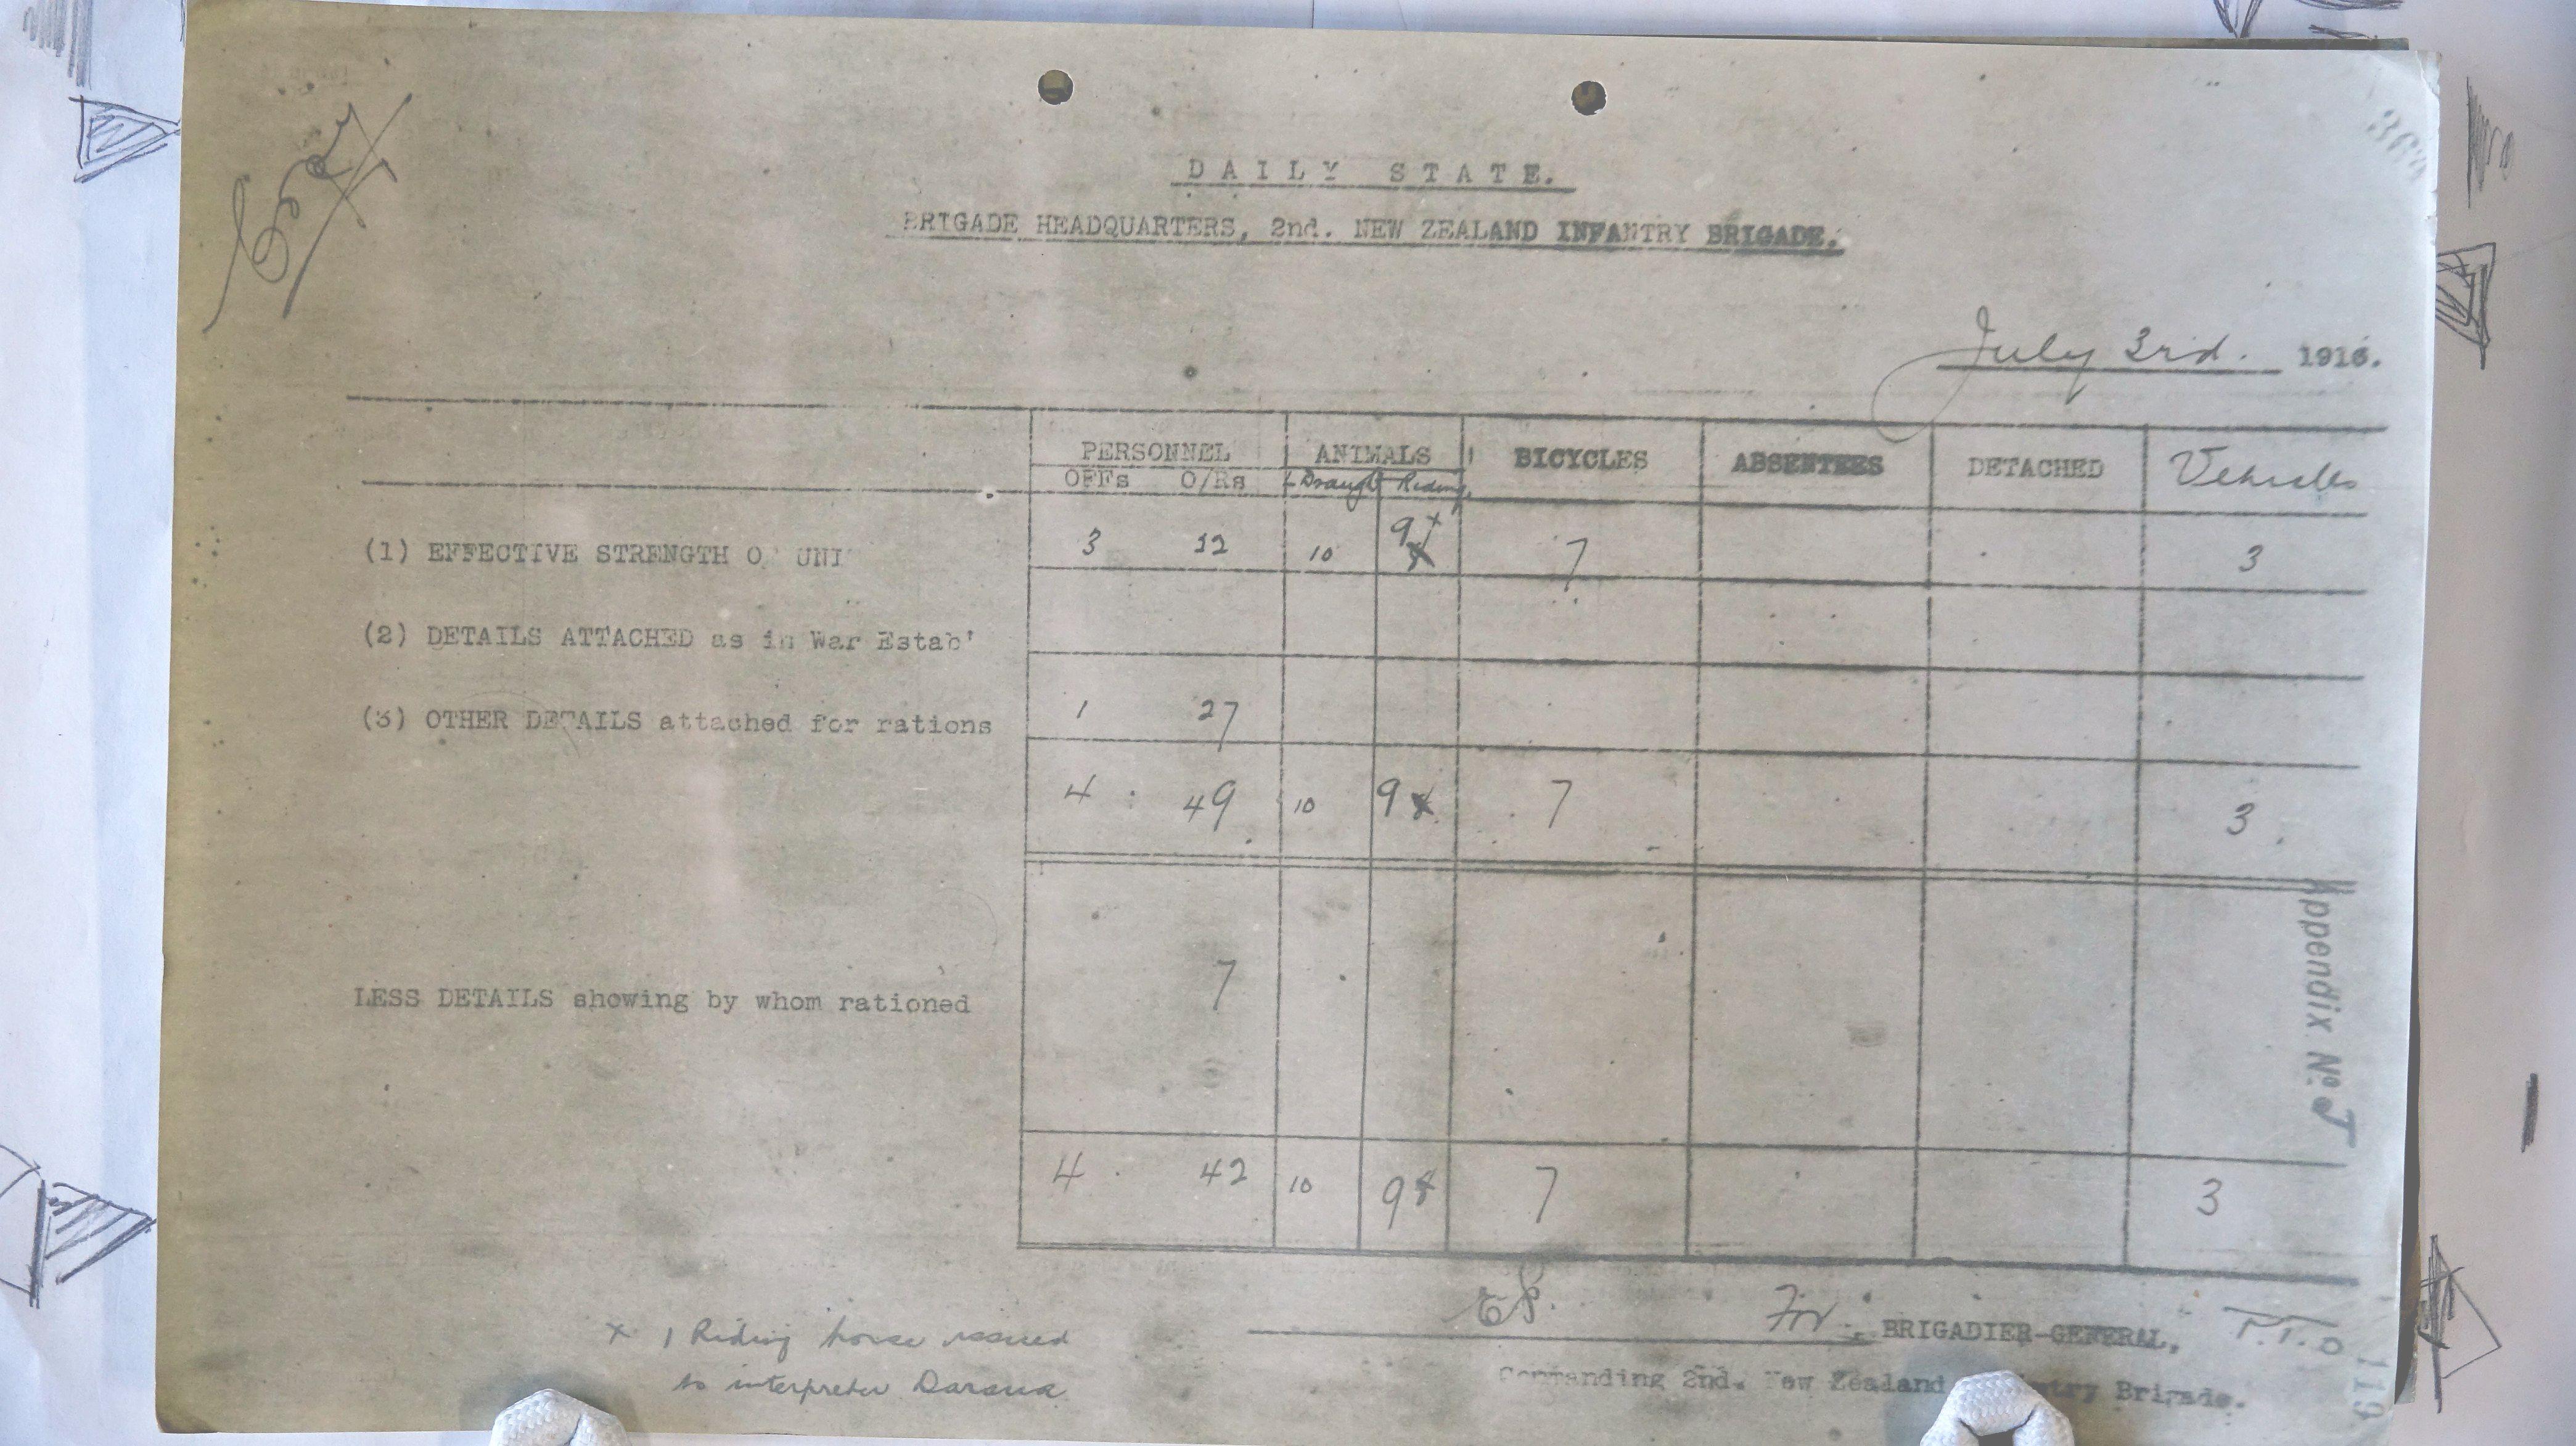 DAILY STATE.
BRIGADE HEADQUARTERS, 2nd. NEW ZEALAND INFANTRY BRIGADE.
July 3rd. 1916.
PERSONNEL ANIMALS BICYCLES ABSENTEES DETACHED Vehicles
OFFs O/Rs L Draught Riding
(1) EFFECTIVE STRENGTH O UNI 3 22 10 9 x 7 3
(2) DETAILS ATTACHED as in War Estab'
(3) OTHER DETAILS attached for rations 1 27
4 49 10 9 7 3
LESS DETAILS showing by whom rationed 7
4 42 10 9 7 3
Appendix No. J
For BRIGADIER-GENERAL,
Commanding 2nd. New Zealand ntry Brigade.
P.T.O
x 1 Riding horse issued
to interpreter
119